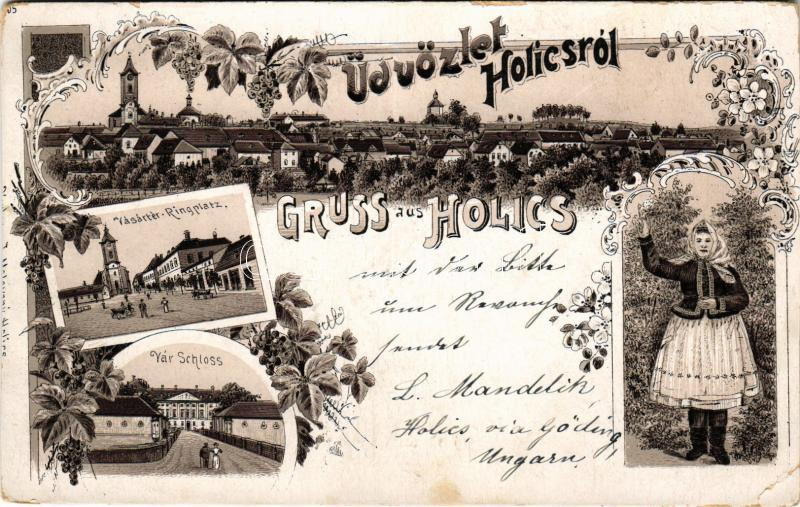 05
Üdvözlet
Holicsról
GRUSS aus HOLICS
Vásártér-Ringplatz.
Vár Schloss
mit der Bitte
um Revanch
sendet
L. Mandelik,
Holics, via Göding,
Ungarn.